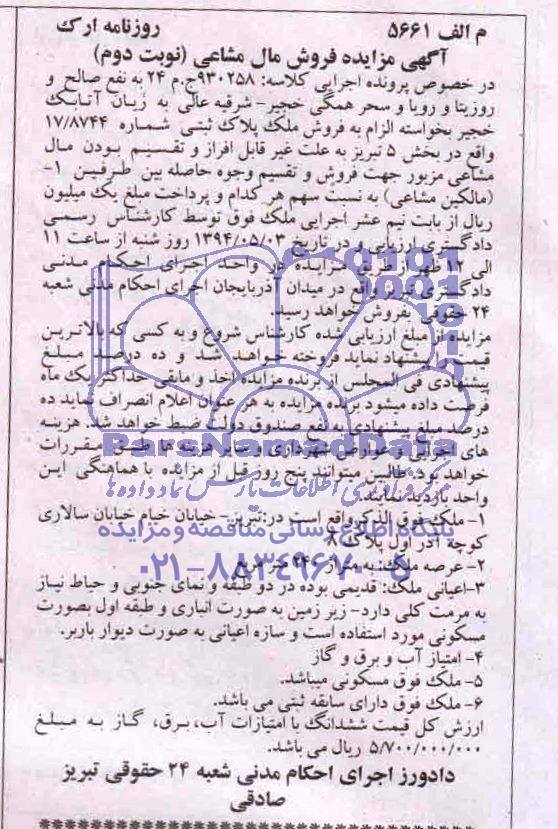 م الف ۵۶۶۱ روزنامه ارک
آگهی مزایده فروش مال مشاعی (نوبت دوم)
در خصوص پرونده اجرایی کلاسه: ۹۳۰۲۵۸ج.م ۲۴ به نفع صالح و
روزیتا و رویا و سحر همگی خجیر- شرقیه عالی به زیان آتابک
خجیر بخواسته الزام به فروش ملک پلاک ثبتی شماره ۱۷/۸۷۴۴
واقع در بخش ۵ تبریز به علت غیر قابل افراز و تقسیم بودن مال
مشاعی مزبور جهت فروش و تقسیم وجوه حاصله بین طرفین ۱-
(مالکین مشاعی) به نسبت سهم هر کدام و پرداخت مبلغ یک میلیون
ریال از بابت نیم عشر اجرایی ملک فوق توسط کارشناس رسمی
دادگستری ارزیابی و در تاریخ ۱۳۹۴/۰۵/۰۳ روز شنبه از ساعت ۱۱
الی ۱۲ ظهر از طریق مزایده در واحد اجرای احکام مدنی
دادگستری تبریز واقع در میدان آذربایجان اجرای احکام مدنی شعبه
۲۴ حقوقی بفروش خواهد رسید.
مزایده از مبلغ ارزیابی شده کارشناس شروع و به کسی که بالاترین
قیمت را پیشنهاد نماید فروخته خواهد شد و ده درصد مبلغ
پیشنهادی فی المجلس از برنده مزایده اخذ و مابقی حداکثر یک ماه
فرصت داده میشود برنده مزایده به هر عنوان اعلام انصراف نماید ده
درصد مبلغ پیشنهادی به نفع صندوق دولت ضبط خواهد شد. هزینه
های اجرایی و عوارض شهرداری و سایر هزینه ها طبق مقررات
خواهد بود. طالبین میتوانند پنج روز قبل از مزایده با هماهنگی این
واحد بازدید نمایند.
۱- ملک فوق الذکر واقع است در: تبریز- خیابان خیام خیابان سالاری
کوچه آذر اول پلاک ۸
۲- عرصه ملک: به متراژ ۲۴۰ متر مربع
۳-اعیانی ملک: قدیمی بوده در دو طبقه و نمای جنوبی و حیاط نیاز
به مرمت کلی دارد- زیر زمین به صورت انباری و طبقه اول بصورت
مسکونی مورد استفاده است و سازه اعیانی به صورت دیوار باربر.
۴- امتیاز آب و برق و گاز
۵- ملک فوق مسکونی میباشد.
۶- ملک فوق دارای سابقه ثبتی می باشد.
ارزش کل قیمت ششدانگ با امتیازات آب، برق، گاز به مبلغ
۵/۷۰۰/۰۰۰/۰۰۰ ریال می باشد.
دادورز اجرای احکام مدنی شعبه ۲۴ حقوقی تبریز
صادقی
ParsNamadData
پایگاه اطلاع رسانی مناقصه و مزایده
۰۲۱-۸۸۳۴۹۶۷۰-۵